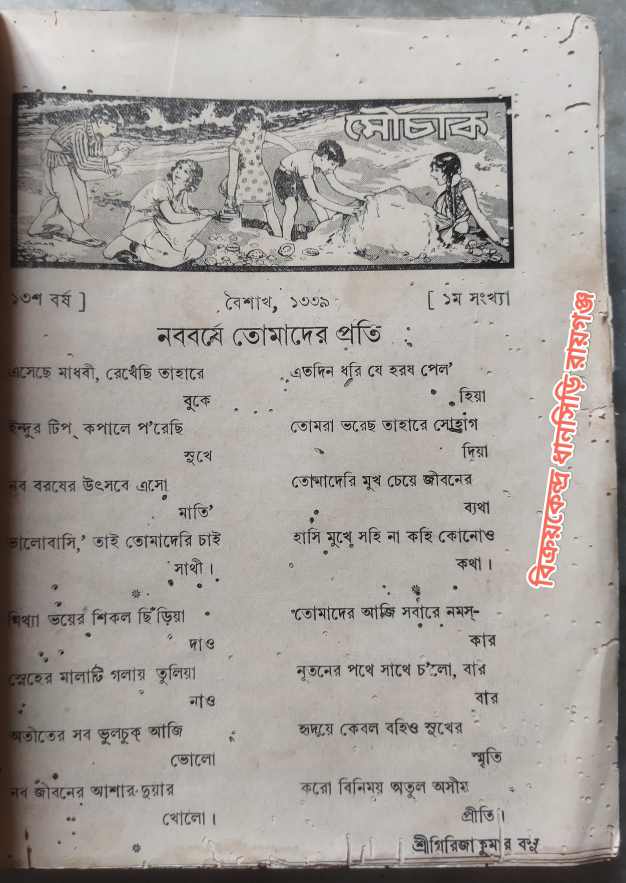 মৌচাক
১৩শ বর্ষ ]
বৈশাখ, ১৩৩৯
[ ১ম সংখ্যা
নববর্ষে তোমাদের প্রতি
এসেছে মাধবী, রেখেছি তাহারে
বুকে
ইন্দুর টিপ্ কপালে প'রেছি
সুখে
নব বরষের উৎসবে এসো
মাতি'
ভালোবাসি,' তাই তোমাদেরি চাই
সাথী ।
মিথ্যা ভয়ের শিকল ছিঁড়িয়া
দাও
স্নেহের মালাটি গলায় তুলিয়া
নাও
অতীতের সব ভুলচুক্ আজি
ভোলো
নব জীবনের আশার দুয়ার
খোলো ।
এতদিন ধরি যে হরষ পেল'
হিয়া
তোমরা ভরেছ তাহারে সোহাগ
দিয়া
তোমাদেরি মুখ চেয়ে জীবনের
ব্যথা
হাসি মুখে সহি না কহি কোনোও
কথা ।
তোমাদের আজি সবারে নমস্-
কার
নূতনের পথে সাথে চ'লো, বার
বার
হৃদয়ে কেবল বহিও সুখের
স্মৃতি
করো বিনিময় অতুল অসীম
প্রীতি ।
শ্রীগিরিজা কুমার বসু
বিক্রয়কেন্দ্র ধানসিড়ি রায়গঞ্জ